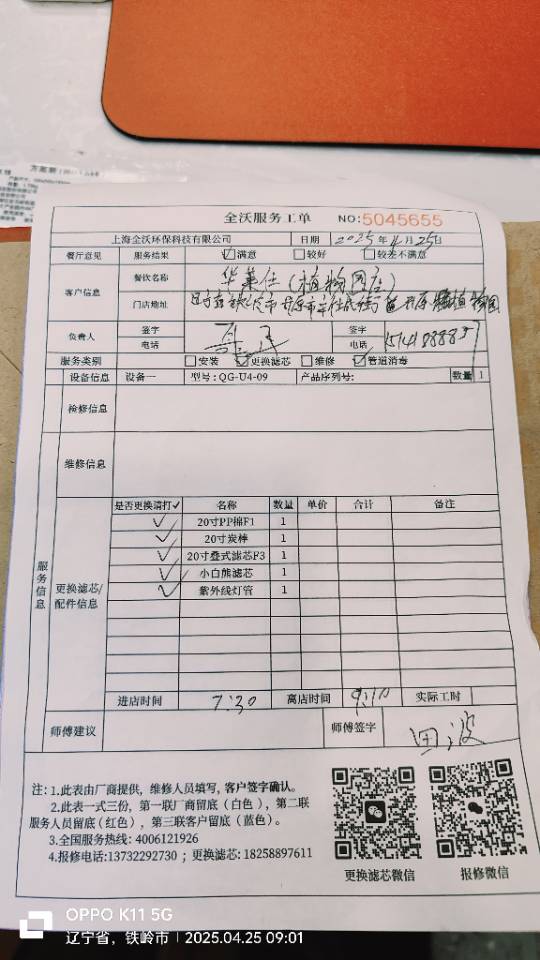 全沃服务工单 NO:5045655
上海全沃环保科技有限公司 日期 2025年4月25日
餐厅意见 服务结果 ☑满意 □较好 □较差不满意
客户信息 餐饮名称 华莱仕(植物园店)
门店地址
负责人 签字 签字
电话 电话
服务类别 □安装 ☑更换滤芯 □维修 ☑管道消毒
设备信息 设备一 型号:QG-U4-09 产品序列号: 数量 1
检修信息
维修信息
服务信息
更换滤芯/配件信息
是否更换请打✓ 名称 数量 单价 合计 备注
✓ 20寸PP棉F1 1
✓ 20寸炭棒 1
✓ 20寸叠式滤芯F3 1
✓ 小白熊滤芯 1
✓ 紫外线灯管 1
进店时间 7:30 离店时间 9:10 实际工时
师傅建议 师傅签字 田波
注: 1.此表由厂商提供, 维修人员填写, 客户签字确认。
2.此表一式三份, 第一联厂商留底(白色), 第二联
服务人员留底(红色), 第三联客户留底(蓝色)。
3.全国服务热线: 4006121926
4.报修电话:13732292730 ; 更换滤芯: 18258897611
更换滤芯微信 报修微信
OPPO K11 5G
辽宁省, 铁岭市 2025.04.25 09:01